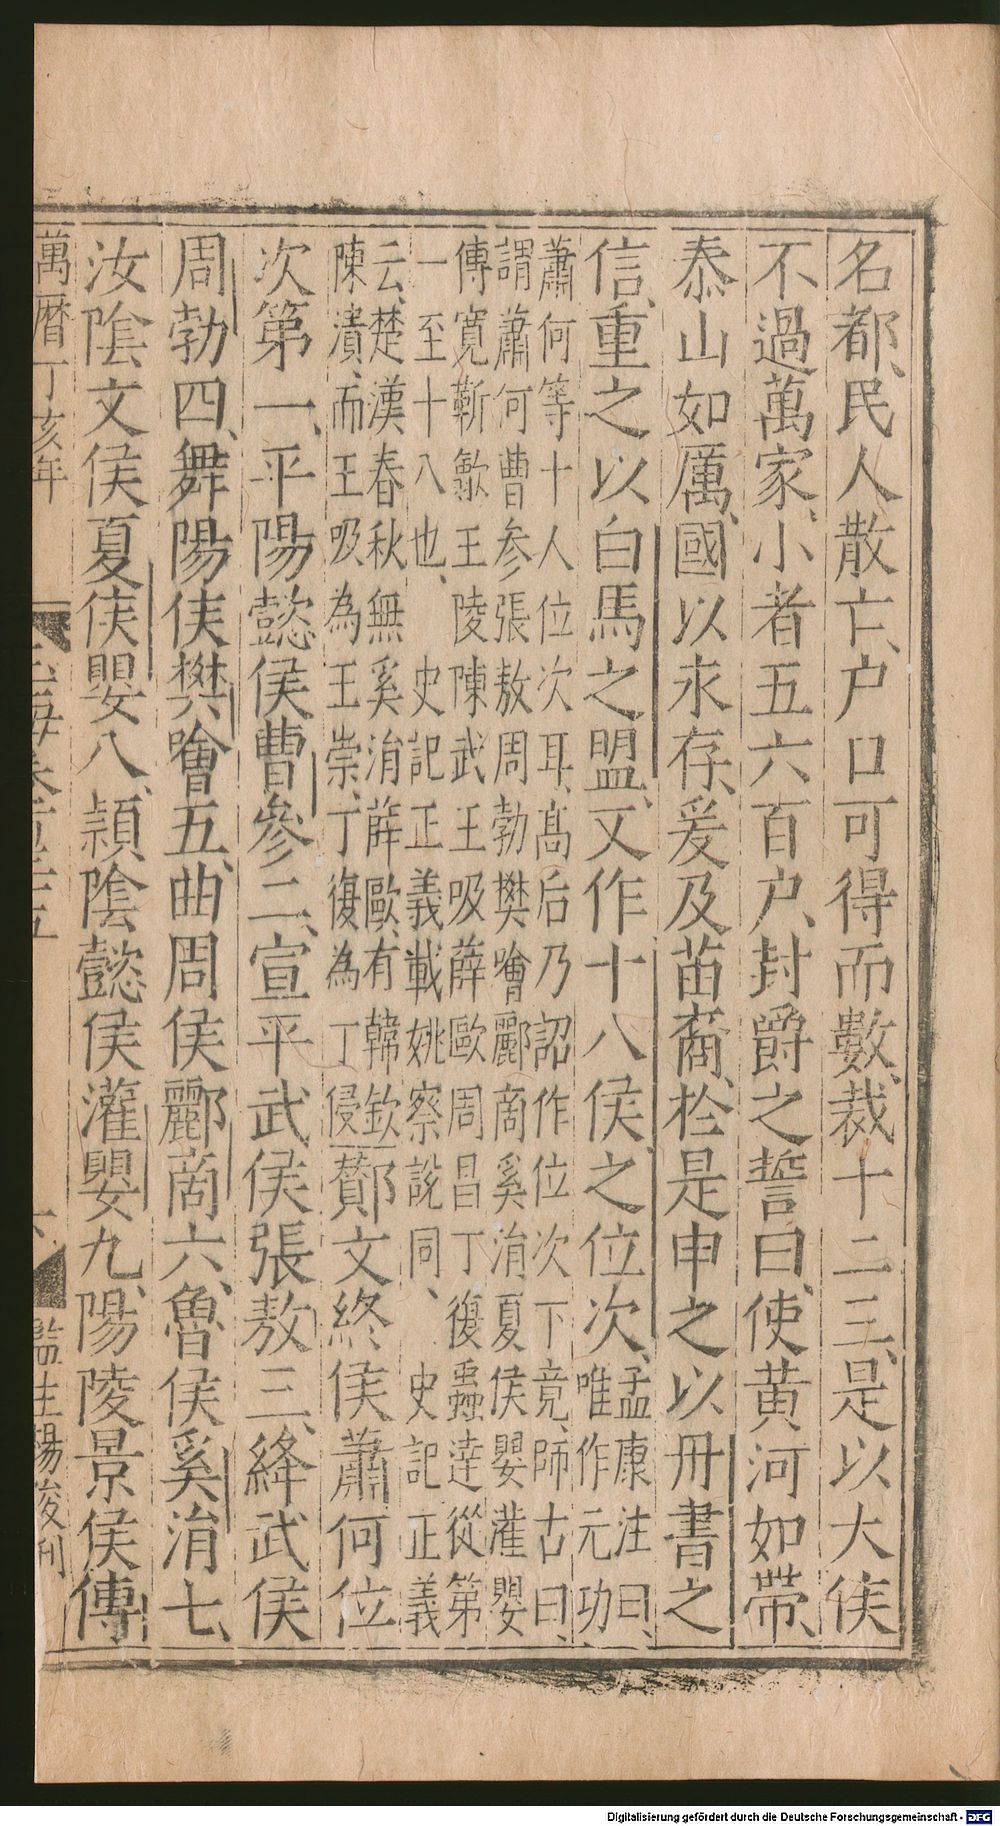 名都民人散亡户口可得而數裁十二三是以大侯
不過萬家小者五六百户封爵之誓曰使黄河如帶
泰山如厲國以永存爰及苗裔於是申之以丹書之
信重之以白馬之盟又作十八侯之位次孟康注曰
唯作元功
蕭何等十人位次耳高后乃詔作位次下竟師古曰
謂蕭何曹参張敖周勃樊噲酈商奚涓夏侯嬰灌嬰
傅寛靳歙王陵陳武王吸薛歐周昌丁復蟲逹從第
一至十八也史記正義載姚察説同史記正義
云楚漢春秋無奚涓薛歐有韓欽
陳濆而王吸為王崇丁復為丁侵酇文終侯蕭何位
次第一平陽懿侯曹參二宣平武侯張敖三絳武侯
周勃四舞陽侯樊噲五曲周侯酈商六魯侯奚涓七
汝陰文侯夏侯嬰八頴陰懿侯灌嬰九陽陵景侯傅
萬曆丁亥年
監生楊浚刊
Digitalisierung gefördert durch die Deutsche Forschungsgemeinschaft - DFG